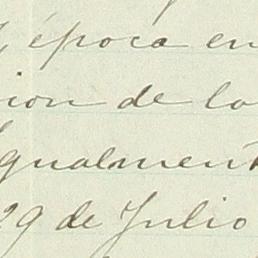 época en
ion de lo
gualment
29 de Julio